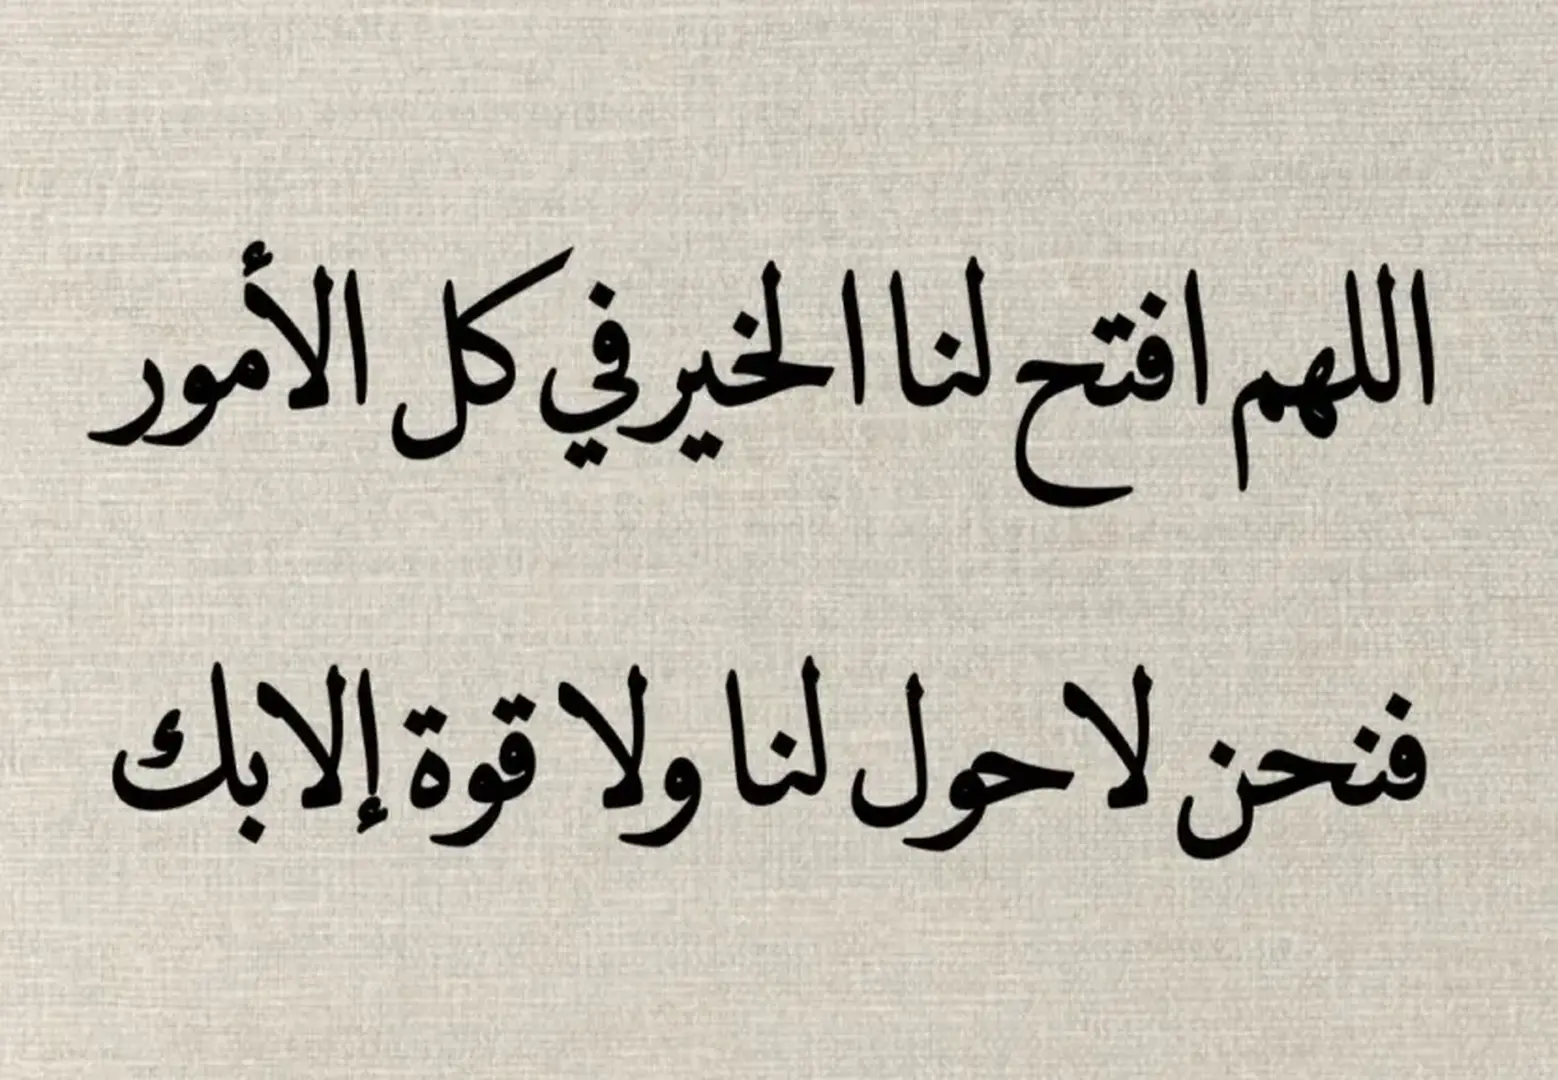 اللهم افتح لنا الخير في كل الأمور
فنحن لا حول لنا ولا قوة إلا بك